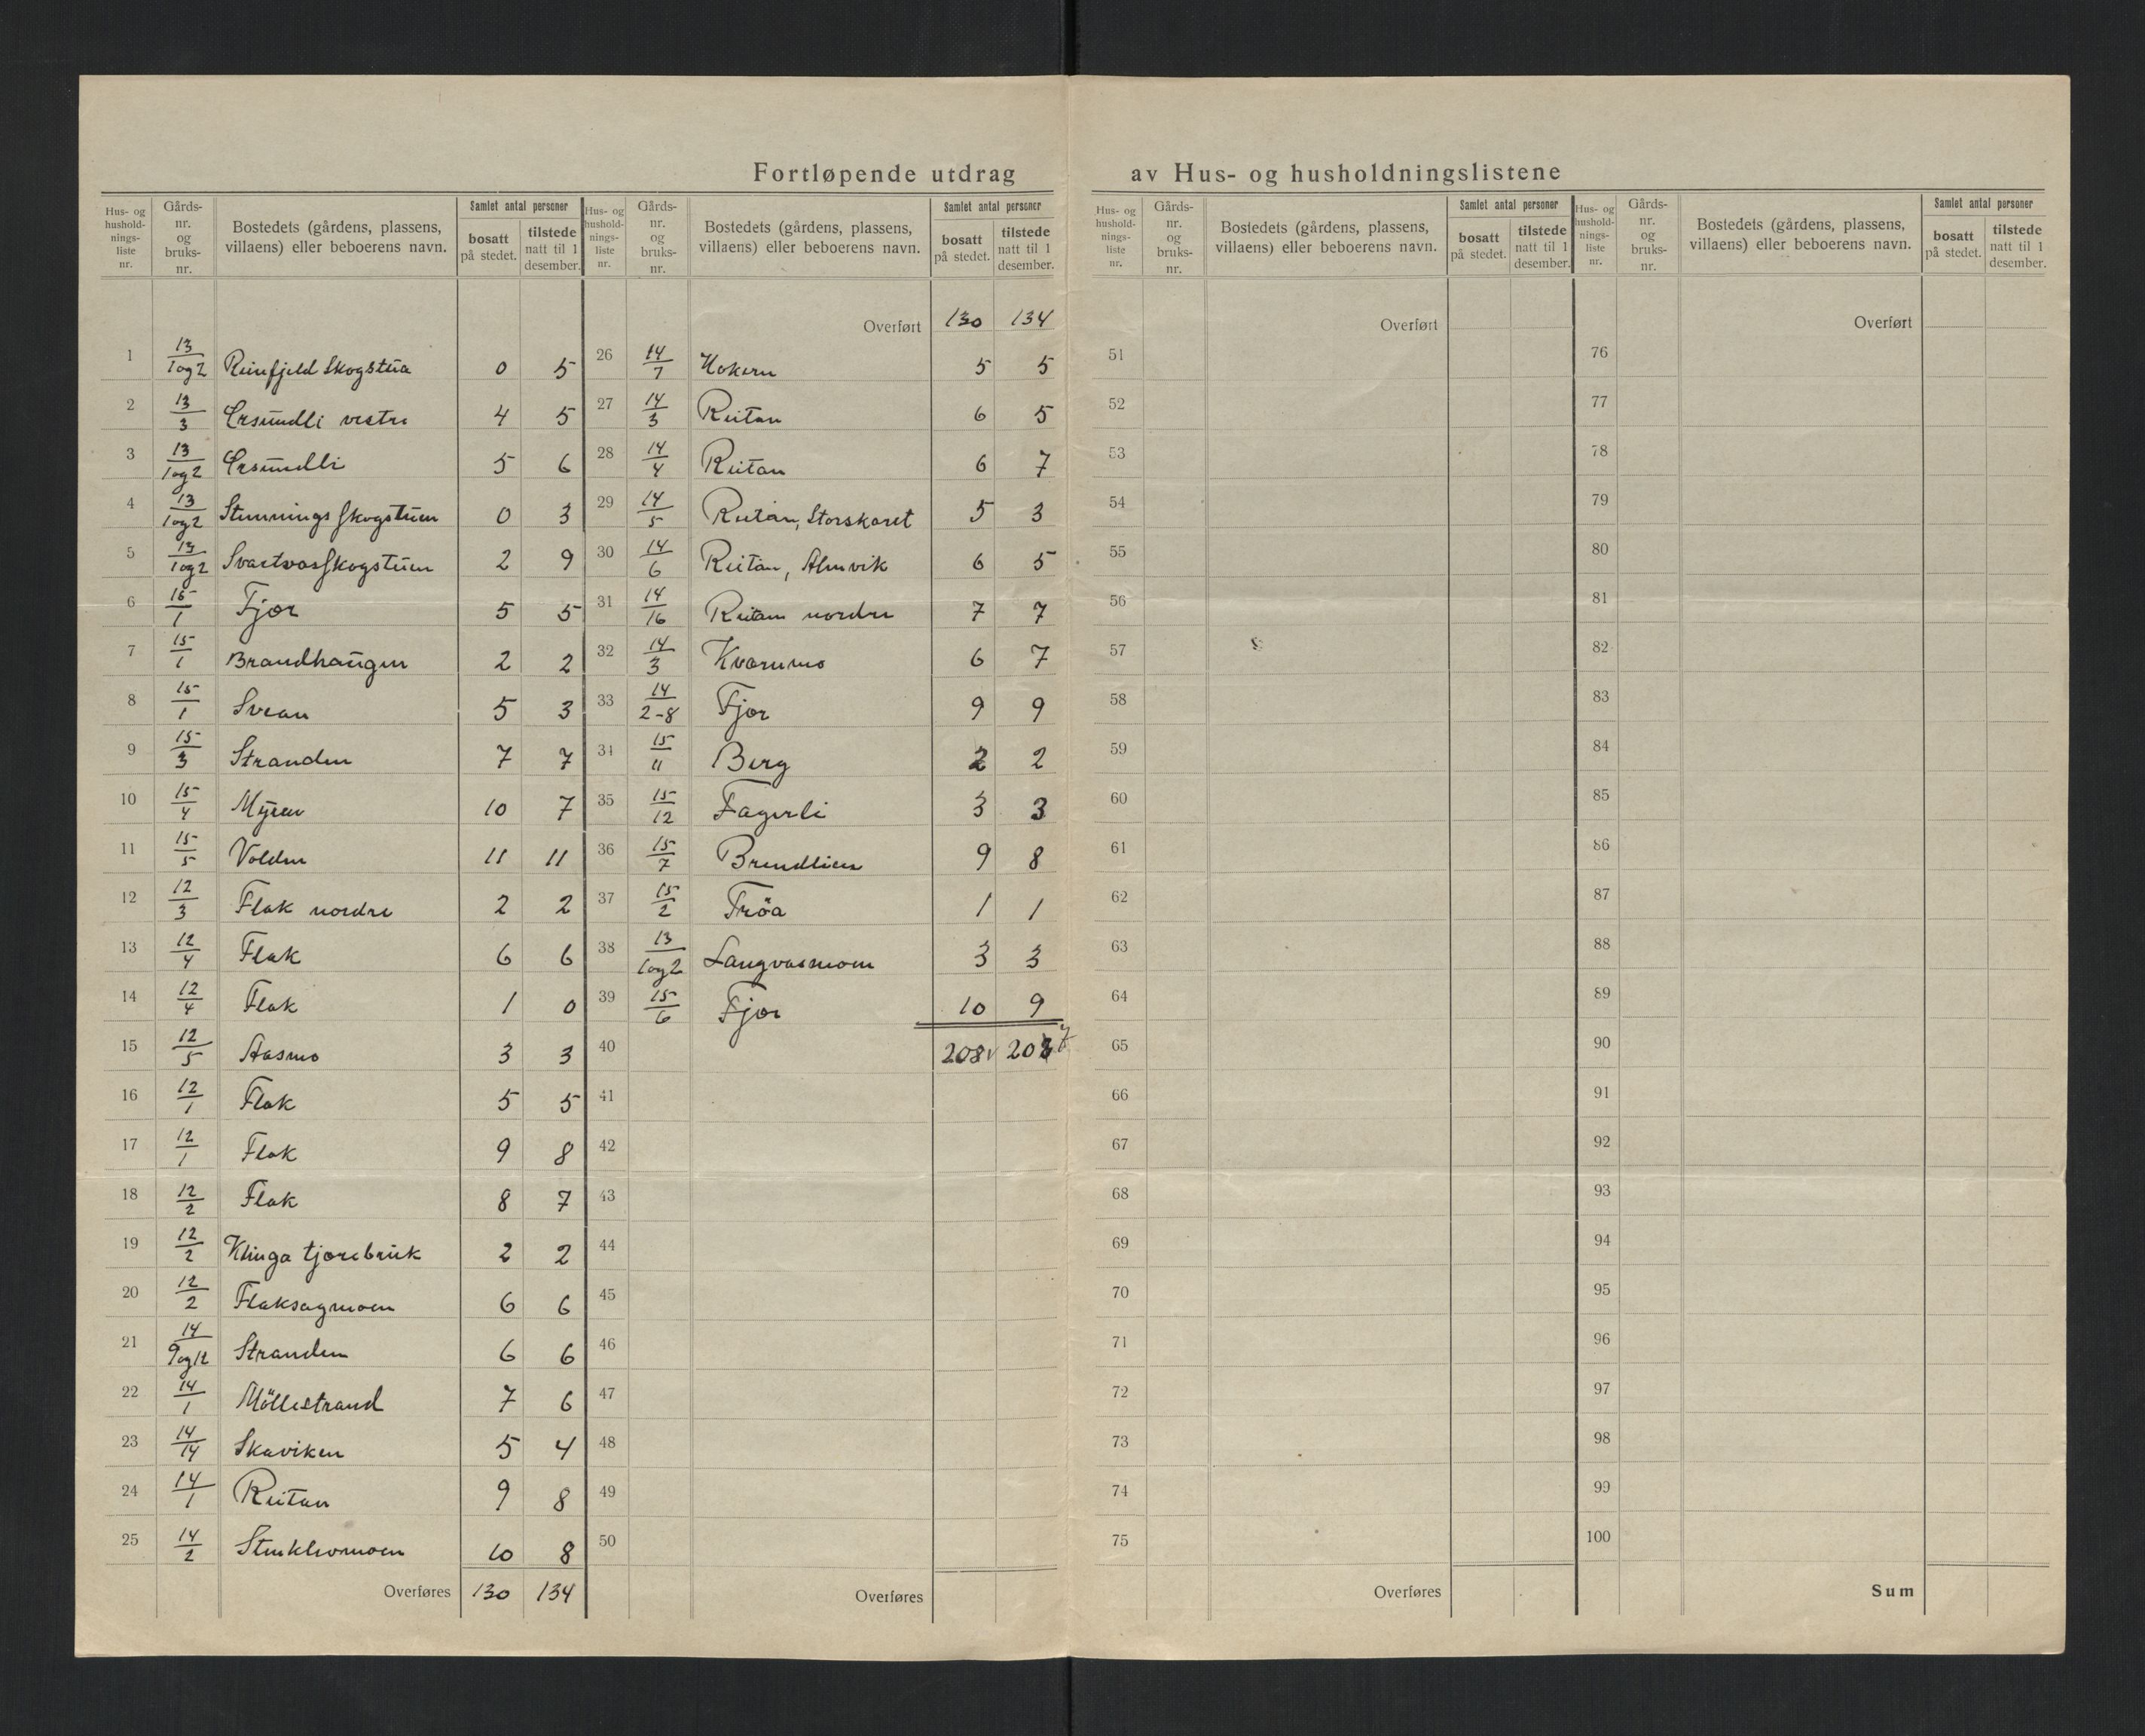 Fortløpende utdrag av Hus- og husholdningslistene
Hus- og hushold-nings-liste nr. Gårds-nr. og bruks-nr. Bostedets (gårdens, plassens, villaens) eller beboerens navn. Samlet antal personer bosatt på stedet. tilstede natt til 1 desember.
1 13/1og2 Reinfjeld Skogstua 0 5
2 13/3 Ersundli vestre 4 5
3 13/1og2 Ersundli 5 6
4 13/1og2 Stennings skogstuen 0 3
5 13/1og2 Svartvasskogstuen 2 9
6 15/1 Fjær 5 5
7 15/1 Brandhaugen 2 2
8 15/1 Svean 5 3
9 15/3 Stranden 7 7
10 15/4 Myren 10 7
11 15/5 Volden 11 11
12 12/3 Flak nordre 2 2
13 12/4 Flak 6 6
14 12/4 Flak 1 0
15 12/5 Aasmo 3 3
16 12/1 Flak 5 5
17 12/1 Flak 9 8
18 12/2 Flak 8 7
19 12/2 Klinga tjærebruk 2 2
20 12/2 Flaksagmoen 6 6
21 14/9og12 Stranden 6 6
22 14/1 Möllestrand 7 6
23 14/14 Skaviken 5 4
24 14/1 Reitan 9 8
25 14/2 10 8
Overføres 130 134
Hus- og hushold-nings-liste nr. Gårds-nr. og bruks-nr. Bostedets (gårdens, plassens, villaens) eller beboerens navn. Samlet antal personer bosatt på stedet. tilstede natt til 1 desember.
Overført 130 134
26 14/7 Hokern 5 5
27 14/3 Reitan 6 5
28 14/4 Reitan 6 7
29 14/5 Reitan, Storskaret 5 3
30 14/6 Reitan, Almvik 6 5
31 14/16 Reitan nordre 7 7
32 14/3 Kvernmo 6 7
33 14/2-8 Fjær 9 9
34 15/11 Berg 2 2
35 15/12 Fagerli 3 3
36 15/7 Brendlien 9 8
37 15/2 Tröa 1 1
38 13/1og2 Langvasmoen 3 3
39 15/6 Fjær 10 9
40 208 v 208 7
41
42
43
44
45
46
47
48
49
50
Overføres
Hus- og hushold-nings-liste nr. Gårds-nr. og bruks-nr. Bostedets (gårdens, plassens, villaens) eller beboerens navn. Samlet antal personer bosatt på stedet. tilstede natt til 1 desember.
Overført
51
52
53
54
55
56
57
58
59
60
61
62
63
64
65
66
67
68
69
70
71
72
73
74
75
Overføres
Hus- og hushold-nings-liste nr. Gårds-nr. og bruks-nr. Bostedets (gårdens, plassens, villaens) eller beboerens navn. Samlet antal personer bosatt på stedet. tilstede natt til 1 desember.
Overført
76
77
78
79
80
81
82
83
84
85
86
87
88
89
90
91
92
93
94
95
96
97
98
99
100
Sum